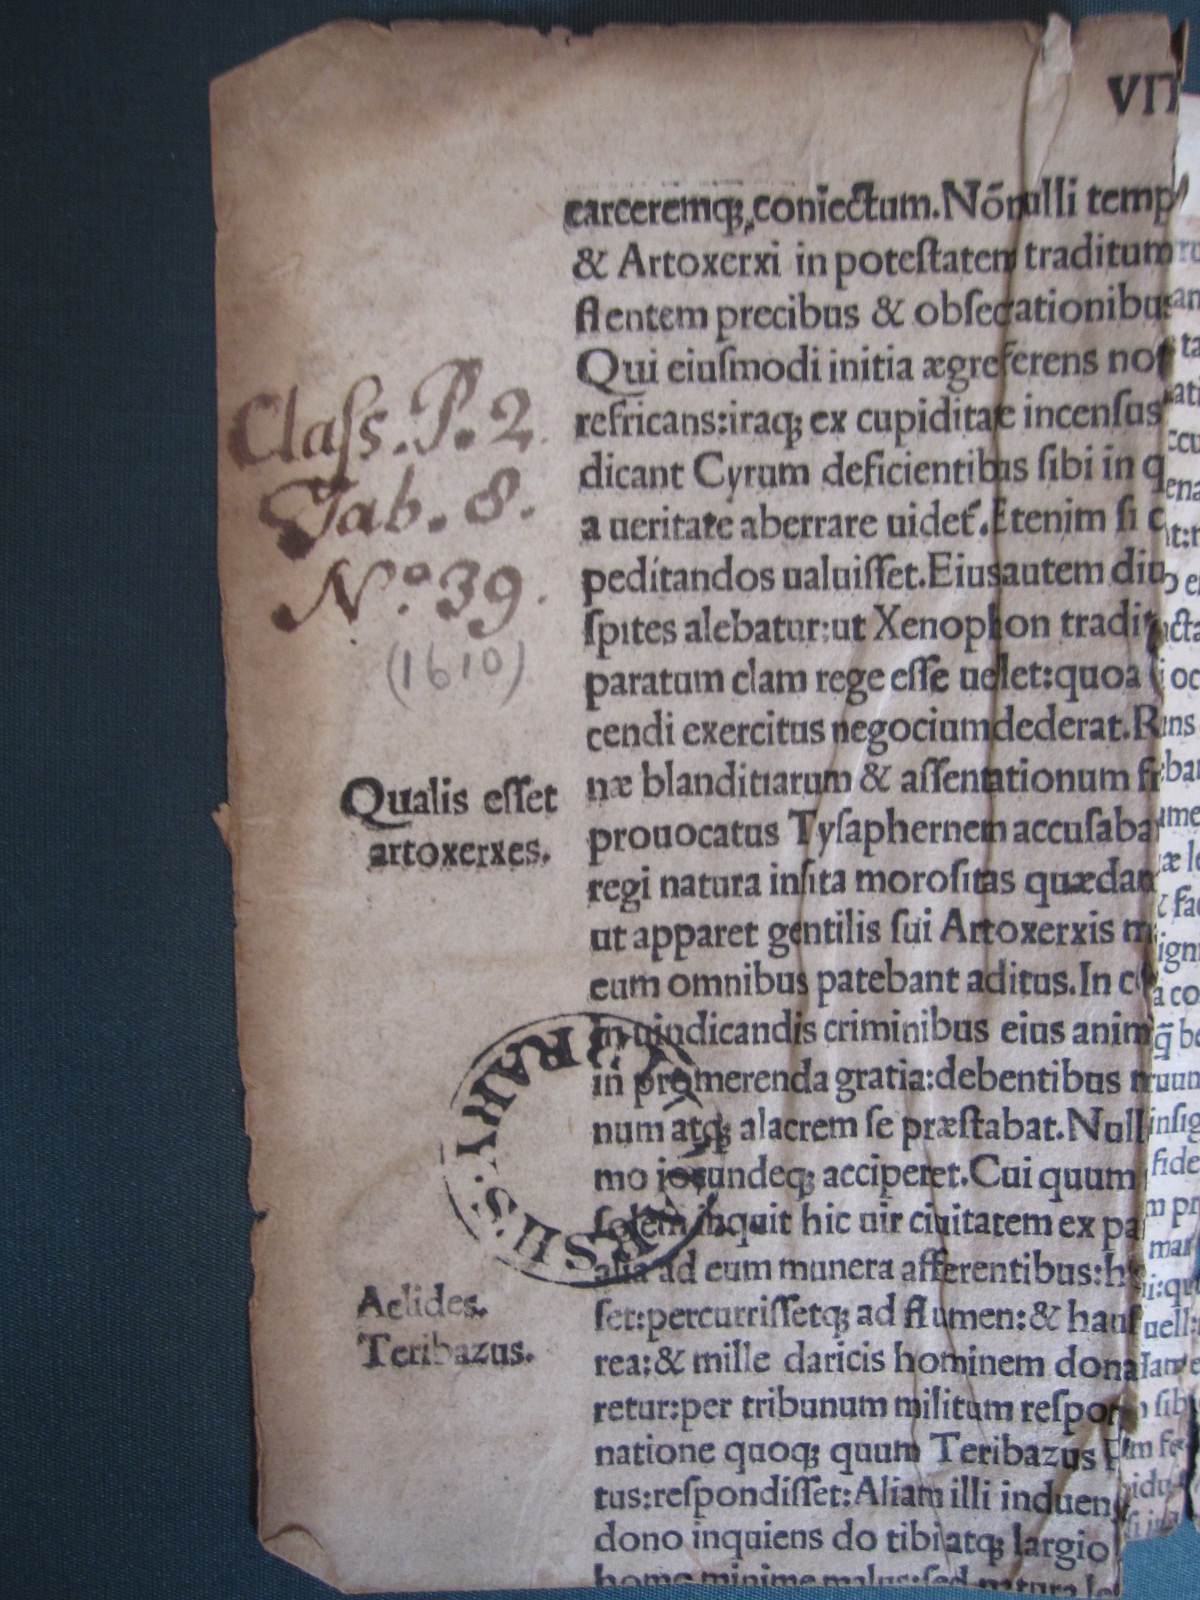 VIT
carceremq; coniectum. Nõnulli temp
& Artoxerxi in poteſtatem traditum
flentem precibus & obſecrationibus
Qui eiuſmodi initia ægreferens no
refricans:iraq; ex cupiditate incenſus
dicant Cyrum deficientibus ſibi in q
a ueritate aberrare uidet᷑. Etenim ſi c
peditandos ualuiſſet. Eius autem diu
ſpites alebatur:ut Xenophon tradit
paratum clam rege eſſe uellet:quoa
cendi exercitus negocium dederat. R
næ blanditiarum & aſſentationum fr
prouocatus Tyſaphernem accuſaba
regi natura inſita moroſitas quædam
ut apparet gentilis ſui Artoxerxis m
eum omnibus patebant aditus. In c
in uindicandis criminibus eius anim
in promerenda gratia:debentibus
num atq; alacrem ſe præſtabat. Null
mo iocundeq; acciperet. Cui quum
ſolem inquit hic uir ciuitatem ex pa
alia ad eum munera afferentibus:h
ſet:percurriſſetq; ad flumen:& hauſ
rea:& mille daricis hominem dona
retur:per tribunum militum reſpon
natione quoq; quum Teribazus
tus:reſpondiſſet:Aliam illi induen
dono inquiens do tibi atq; largio
homo minime malus:ſed natura le
Claſs. P. 2
Tab. 8.
Nº. 39.
(1610)
Qualis eſſet
artoxerxes.
Aelides.
Teribazus.